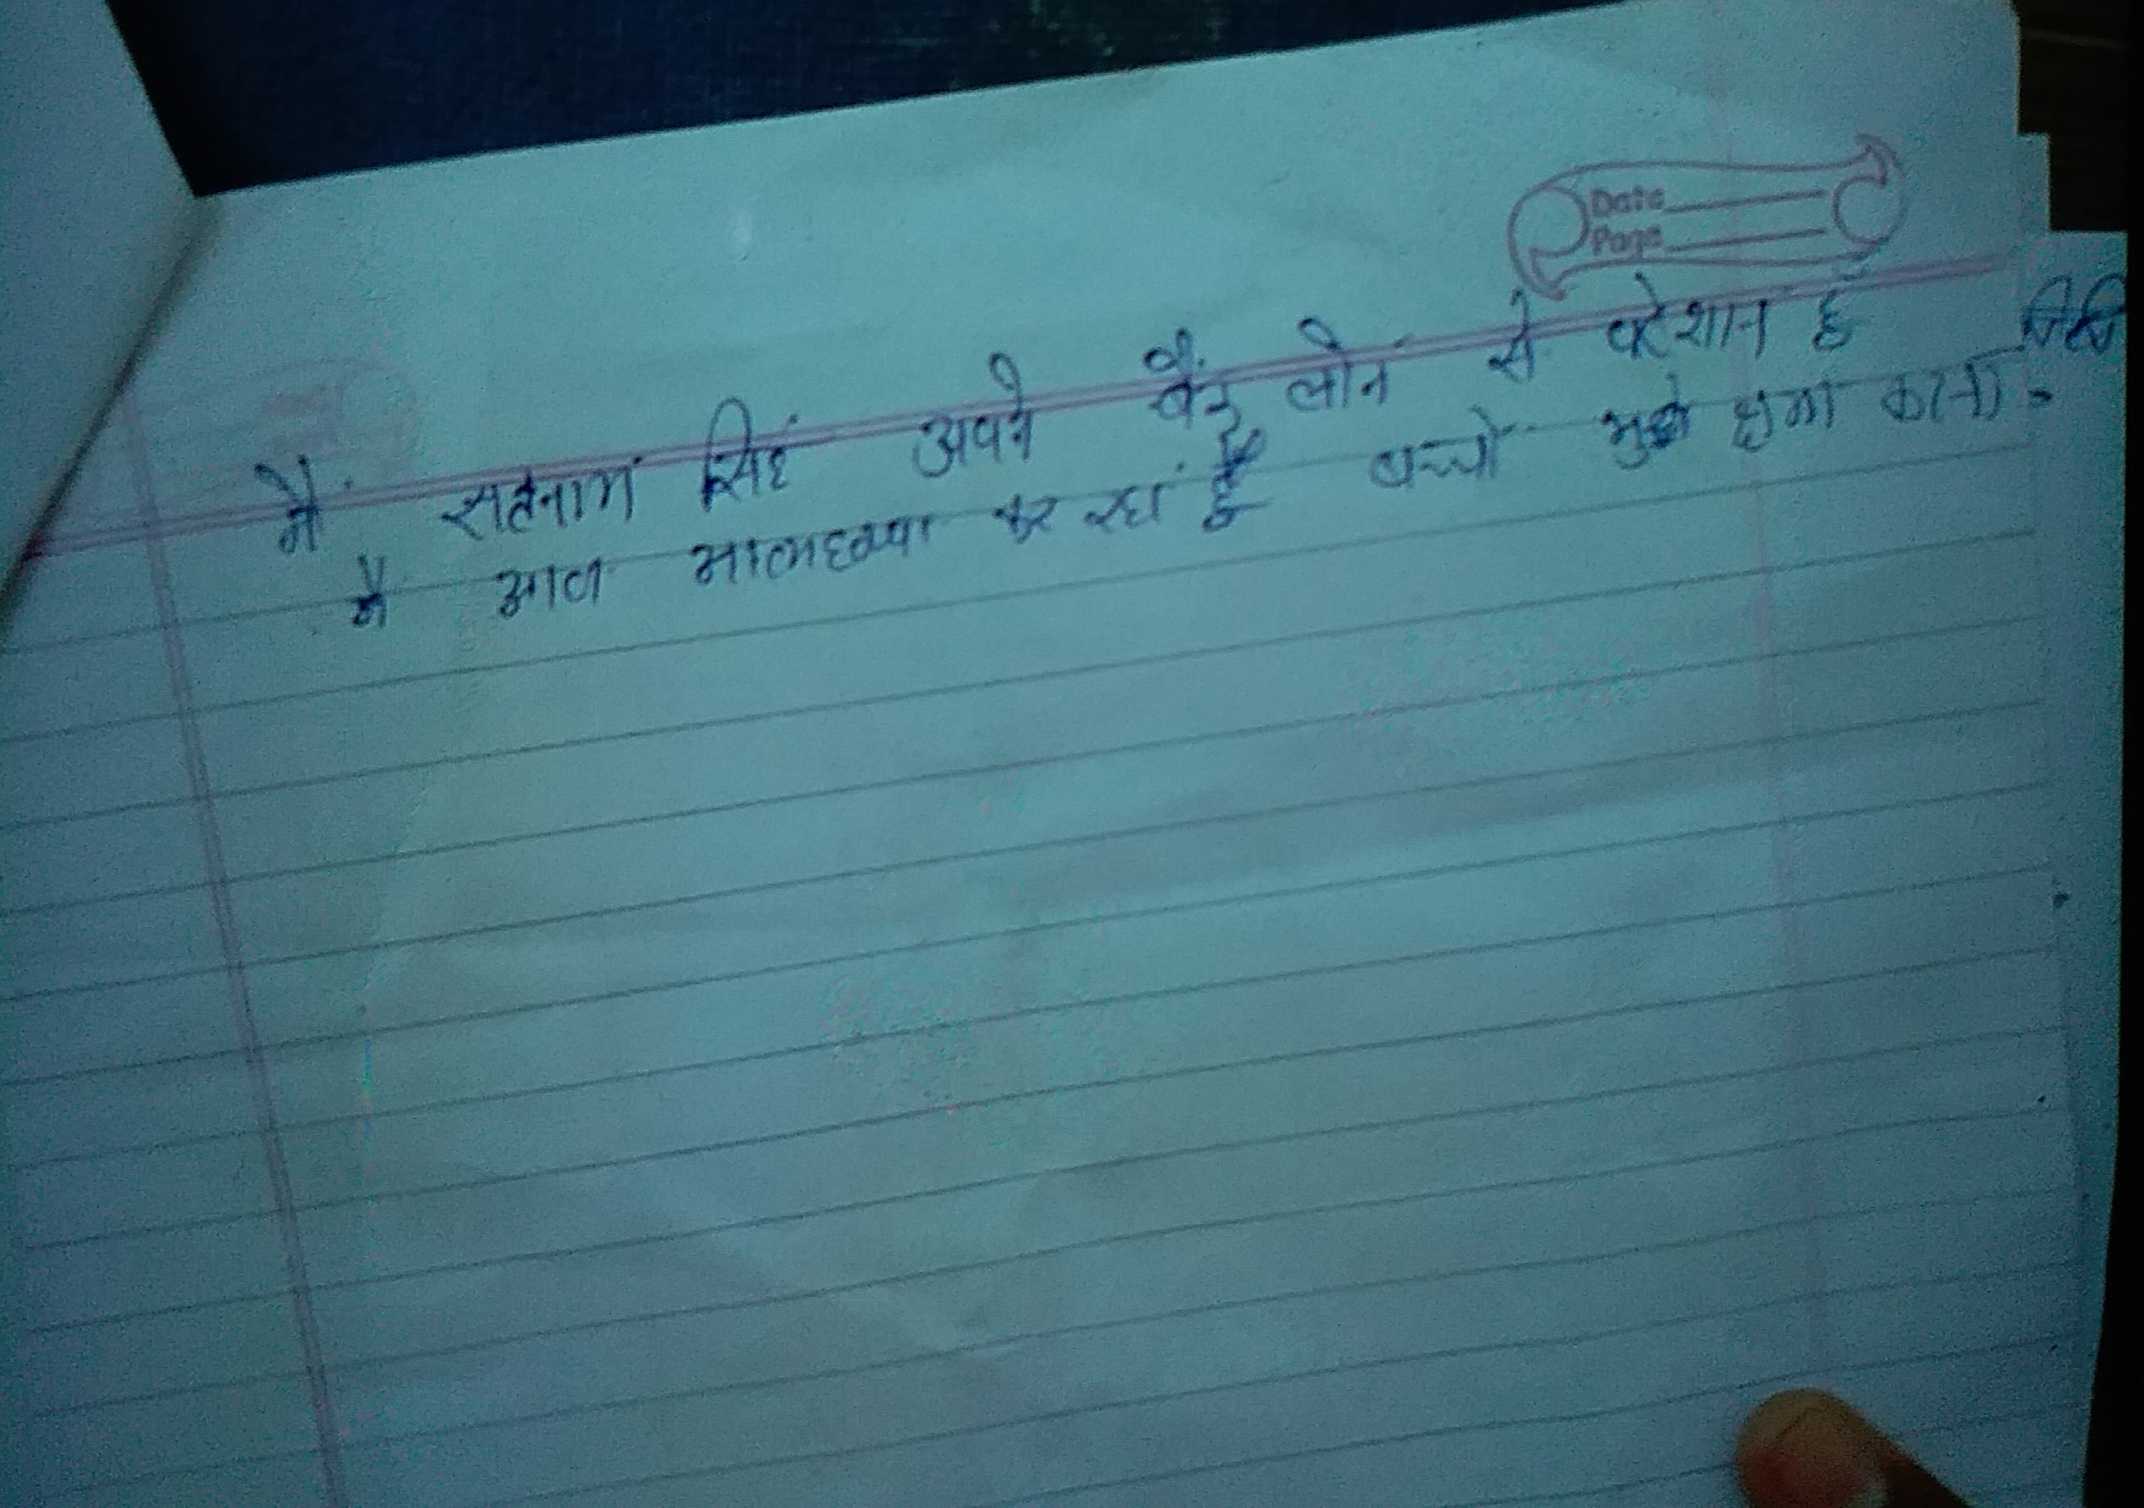 Date
Page
मैं सतनाम सिहं अपने बैंक लोन से परेशान हूँ
मैं आज आत्महत्या कर रहां हूँ बच्चो मुझे क्षमा करना